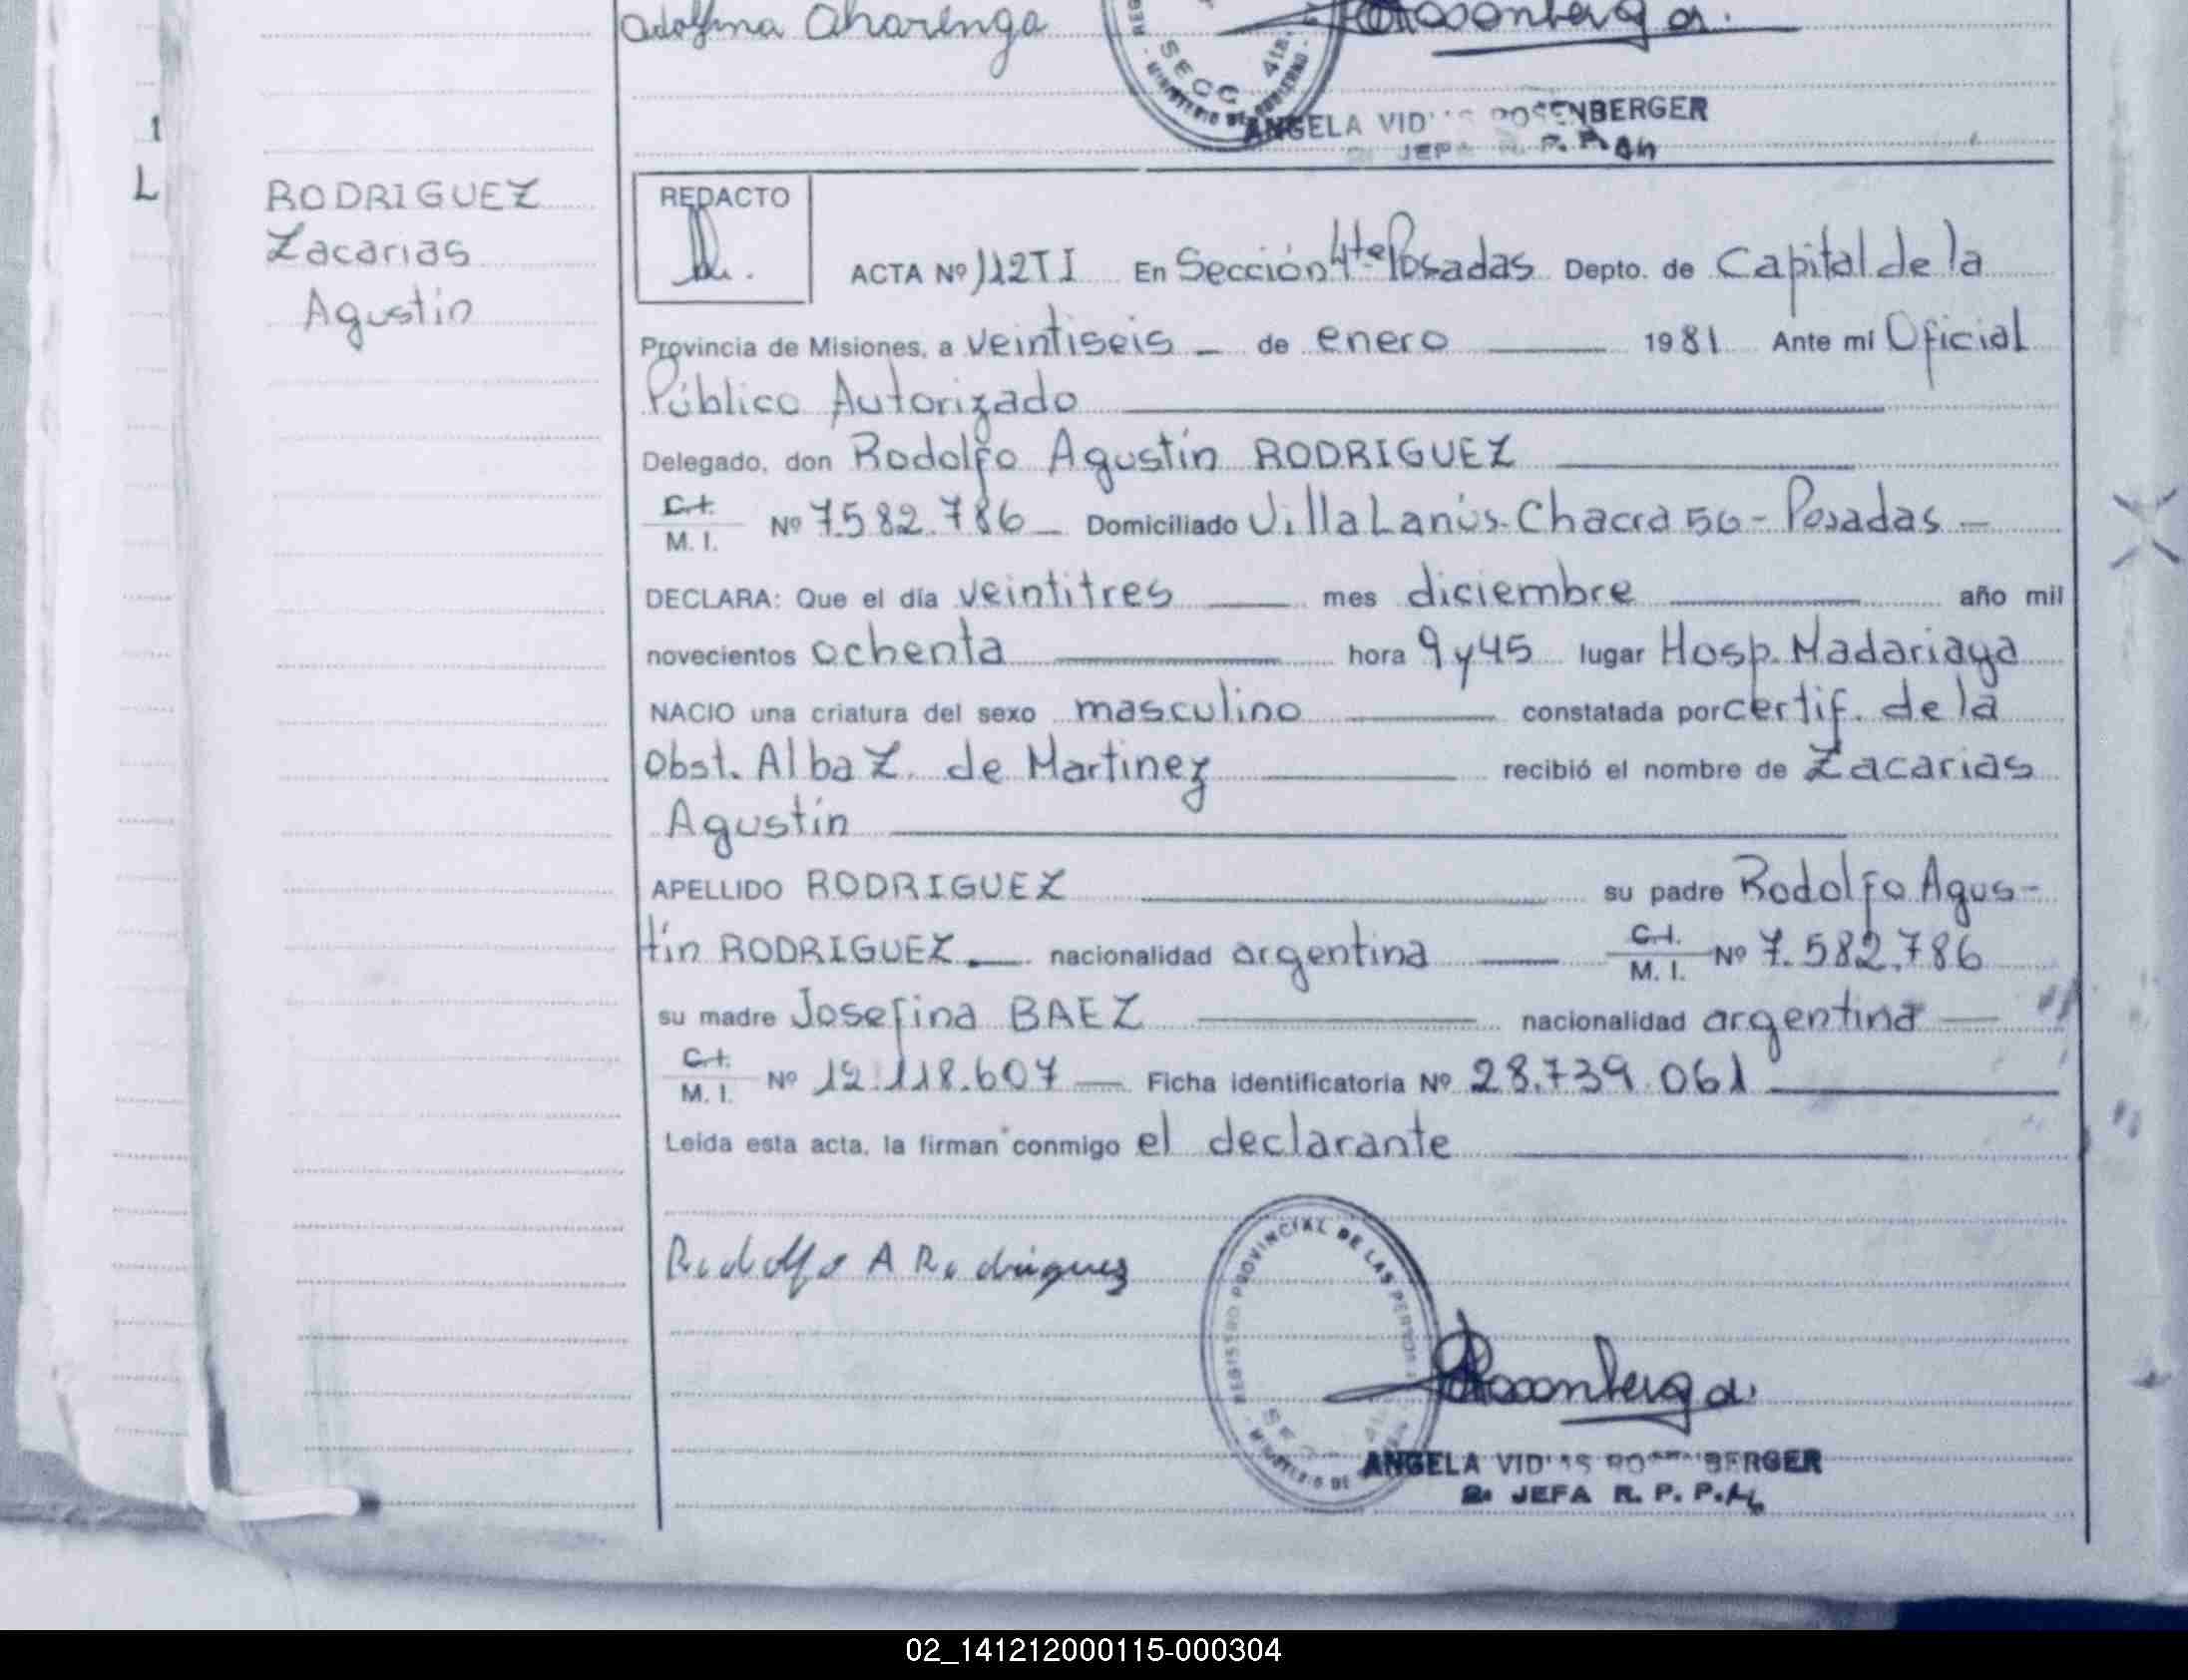 Adolfina Aharenga
SECC. 4ta.
MINISTERIO DE GOBIERNO
ANGELA VID ROSENBERGER
JEFA R. P. P.
1
L
RODRIGUEZ
Zacarias
Agustín
REDACTO
ACTA Nº 112TI En Sección 4ta Posadas Depto. de Capital de la
Provincia de Misiones, a veintiseis - de enero 1981 Ante mí Oficial
Público Autorizado
Delegado, don Rodolfo Agustín RODRIGUEZ
C.I.
M. I. Nº 7.582.786 Domiciliado Villa Lanús-Chacra 56-Posadas -
DECLARA: Que el día veintitres mes diciembre año mil
novecientos ochenta hora 9 y 45 lugar Hosp. Madariaga
NACIO una criatura del sexo masculino constatada por certif. de la
Obst. Alba Z. de Martinez recibió el nombre de Zacarias
Agustín
APELLIDO RODRIGUEZ su padre Rodolfo Agus-
tín RODRIGUEZ nacionalidad argentina C.I. M. I. Nº 7.582.786
su madre Josefina BAEZ nacionalidad argentina
C.I.
M. I. Nº 12.118.607 Ficha identificatoria Nº 28.739.061
Leída esta acta, la firman conmigo el declarante
Rodolfo A Rodriguez
REGISTRO PROVINCIAL DE LAS PERSO
SECC 4
MINISTERIO DE
ANGELA VID AS RO BERGER
2: JEFA R. P. P.
02_141212000115-000304